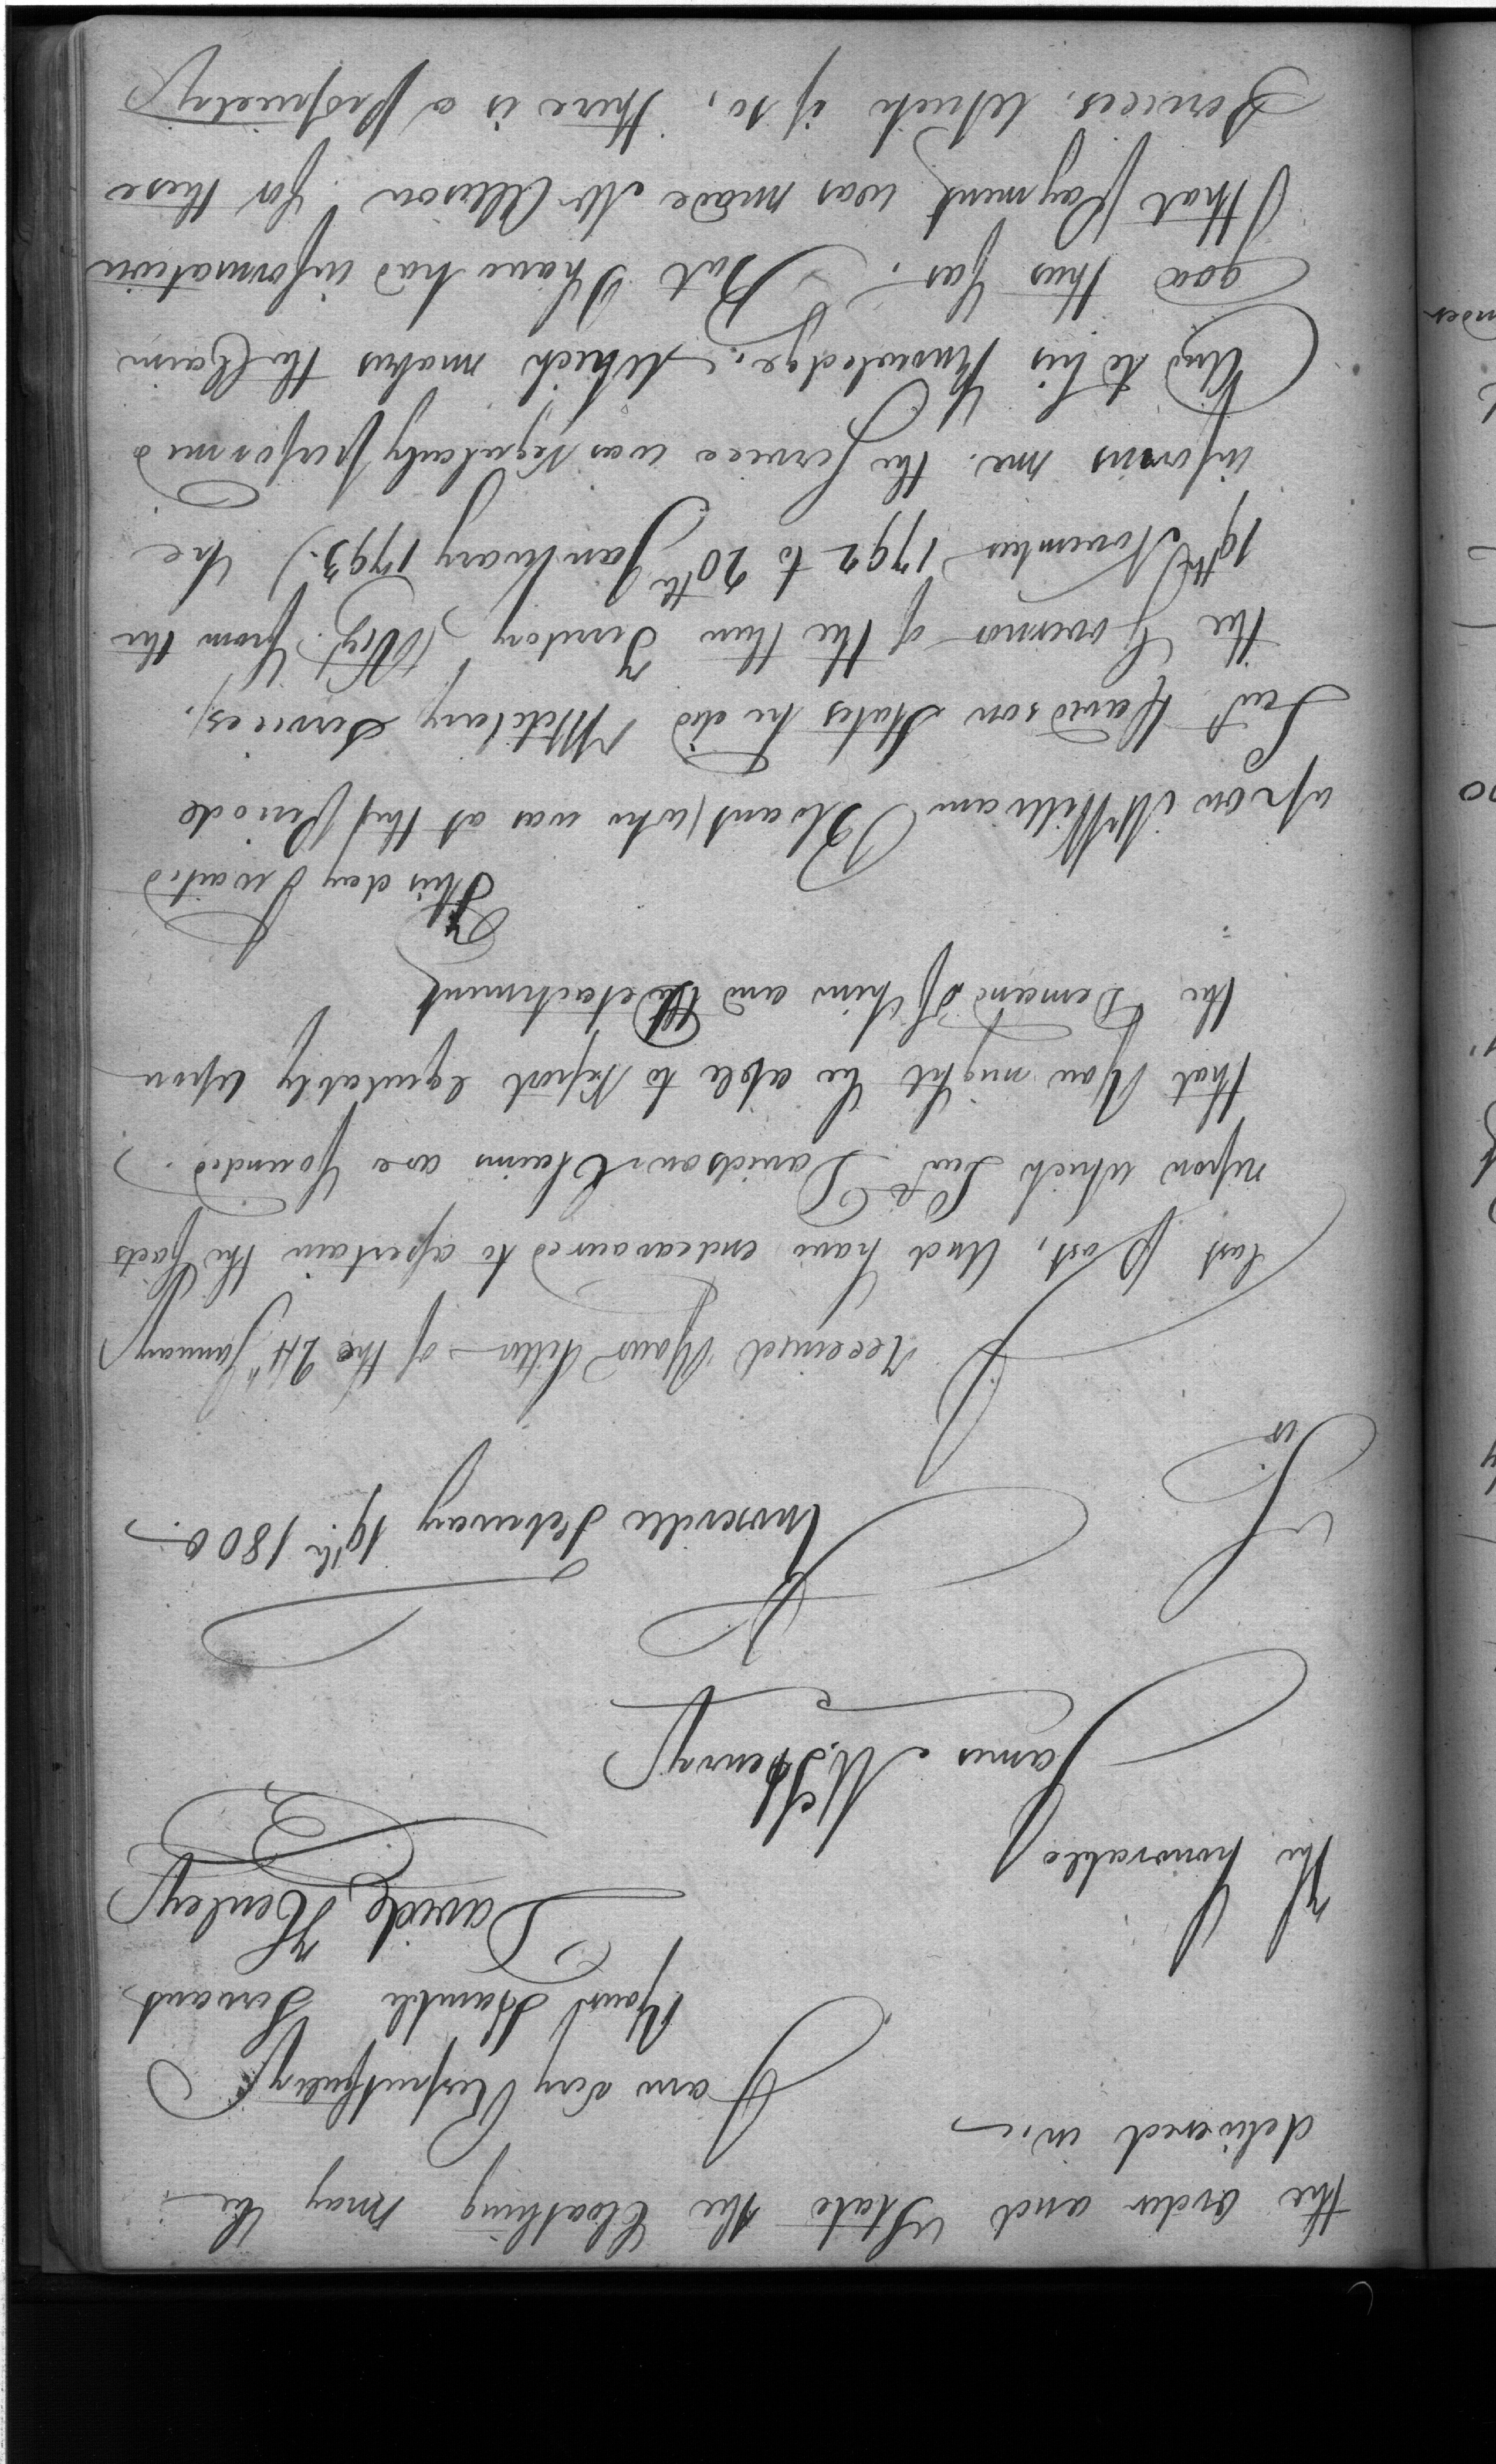 the order and State the Cloathing may be
delivered in.
I am very Respectfully
Your Humble Servant
David Henley
The honorable
James McHenry
Knoxville February 19th 1800.
Sir
I received Your Letter of the 24th January
last past, And have endeavoured to assertain the facts
upon which Lieut Davidsons Claims are founded.
that You might be able to Report Equitably upon
the Demand of him and the detachment
This day I waited
upon Mr William Blount (who was at that Periode
the Governor of the then Territory
Lieut Davidson States he did Military Services,
(Viz from the
19th November 1792 to 20th January 1793.) he
informs me. the Service was regularly performed
And to his Knowledge. Which makes the Claim
good thus far. But I have had information
that payment was made Mr Allison for these
Services. Which if so, there is a propriety